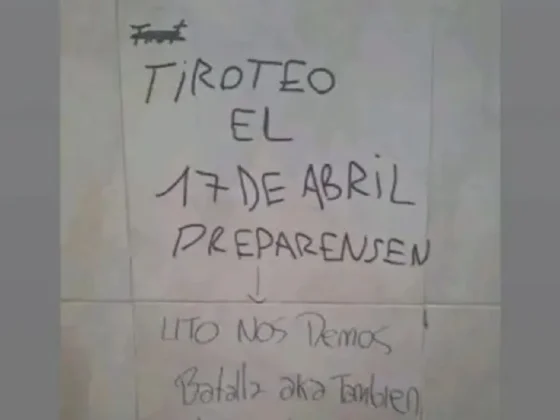 TIROTEO
EL
17 DE ABRIL
PREPARENSEN
NOS Demos
Batalla aka Tambien